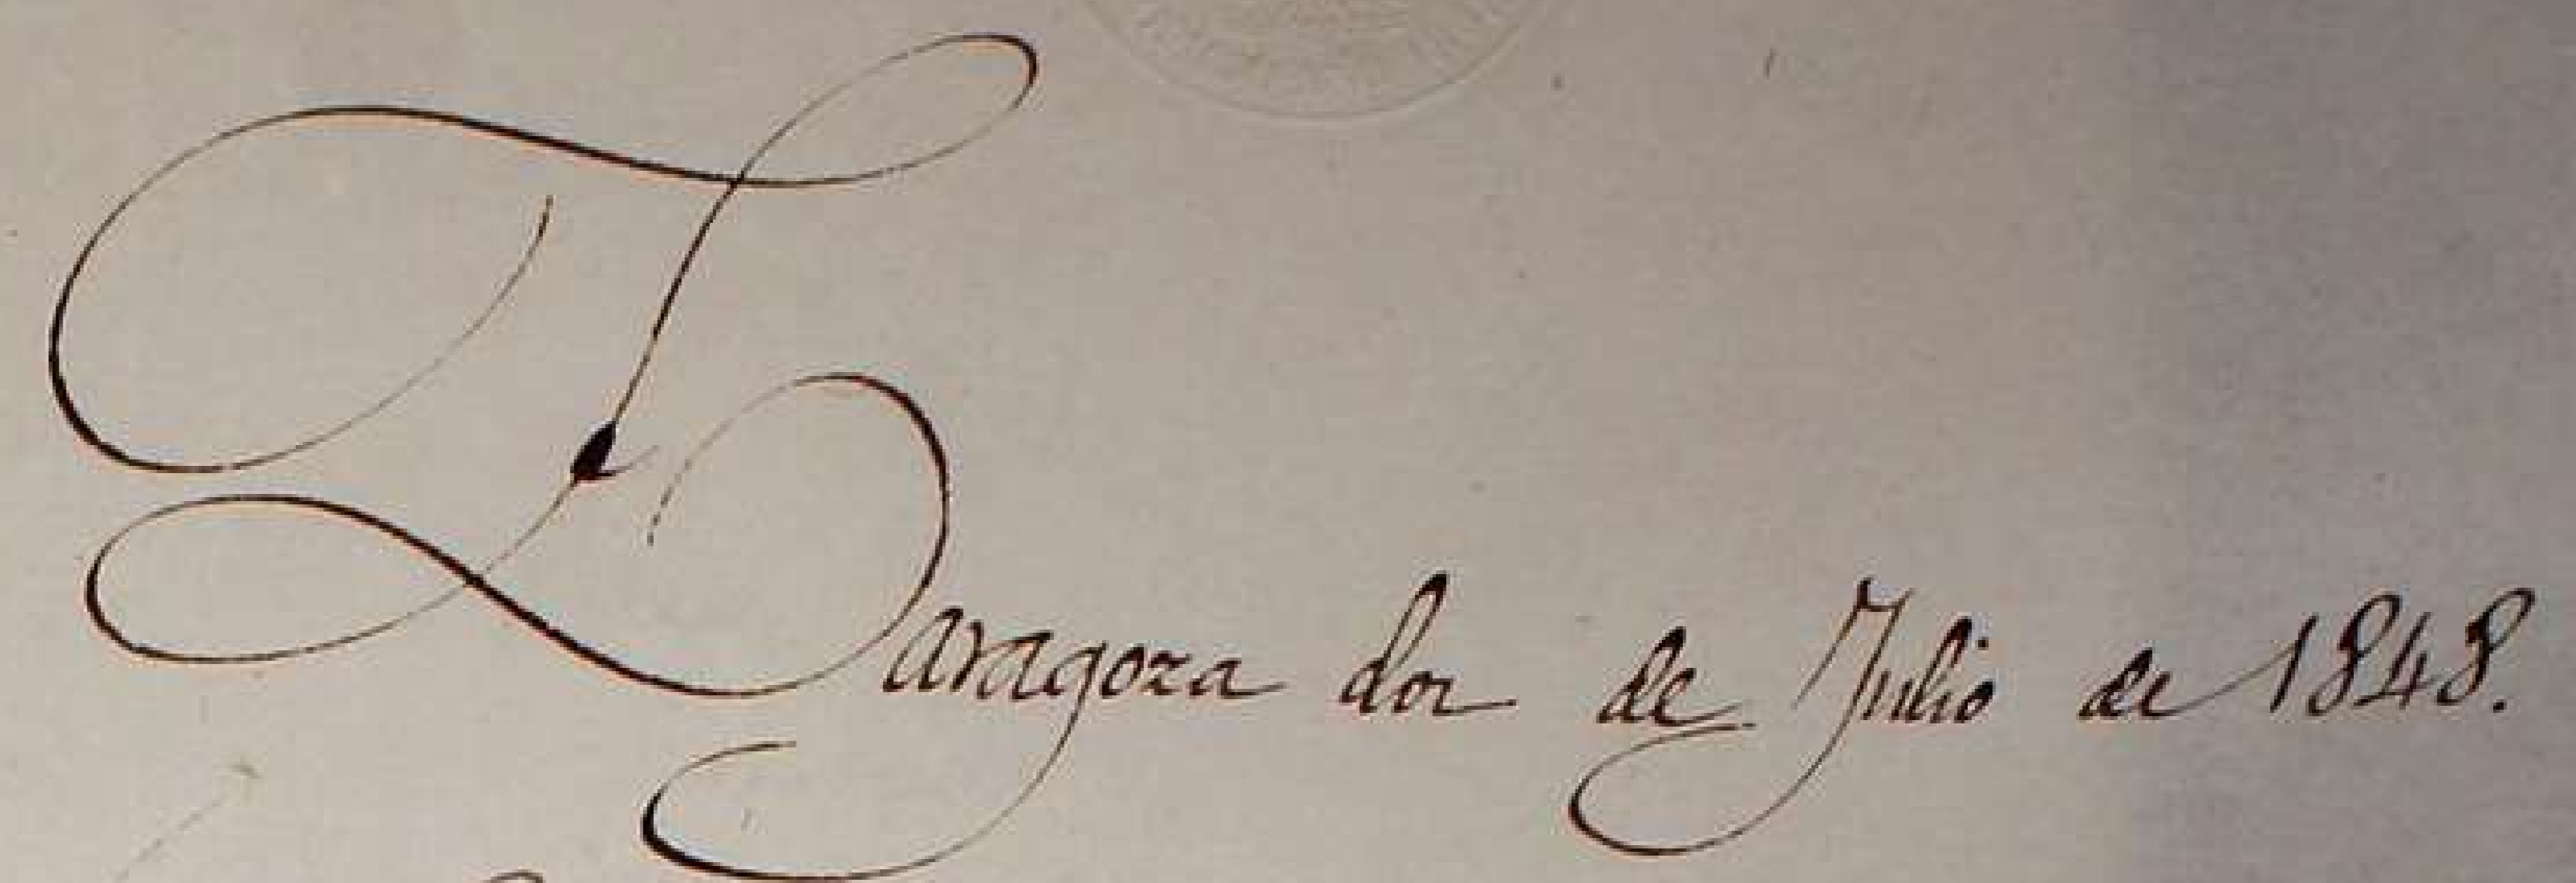 Zaragoza dos de Julio de 1848.